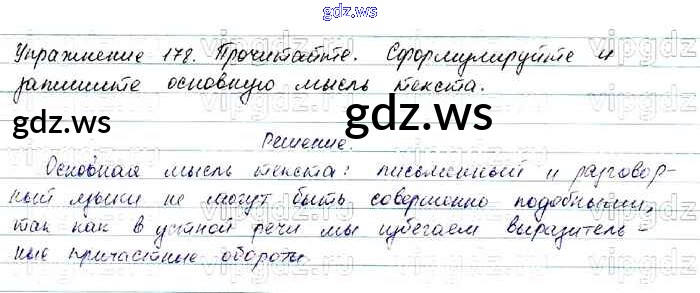 gdz.ws
Упражнение 178. Прочитайте. Сформулируйте и
запишите основную мысль текста.
gdz.ws
gdz.ws
Решение.
Основная мысль текста: письменный и разговор-
ный языки не могут быть совершенно подобными,
так как в устной речи мы избегаем выразитель-
ные причастные обороты.